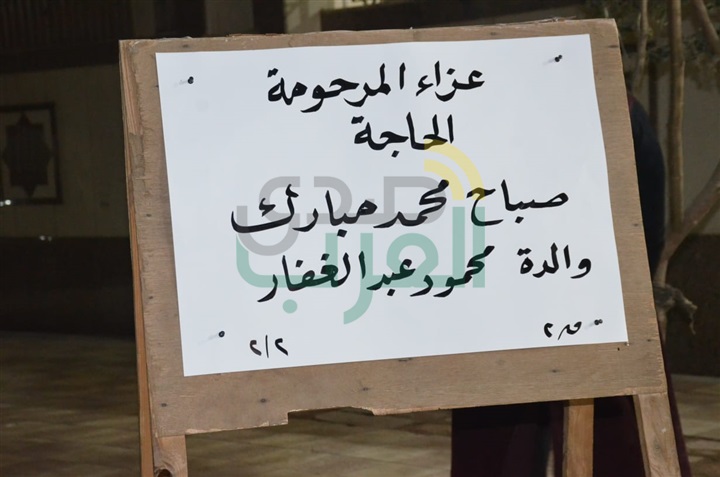 عزاء المرحومة
الحاجة
صباح محمد مبارك
والدة محمود عبد الغفار
٢/٢
صدى
العرب